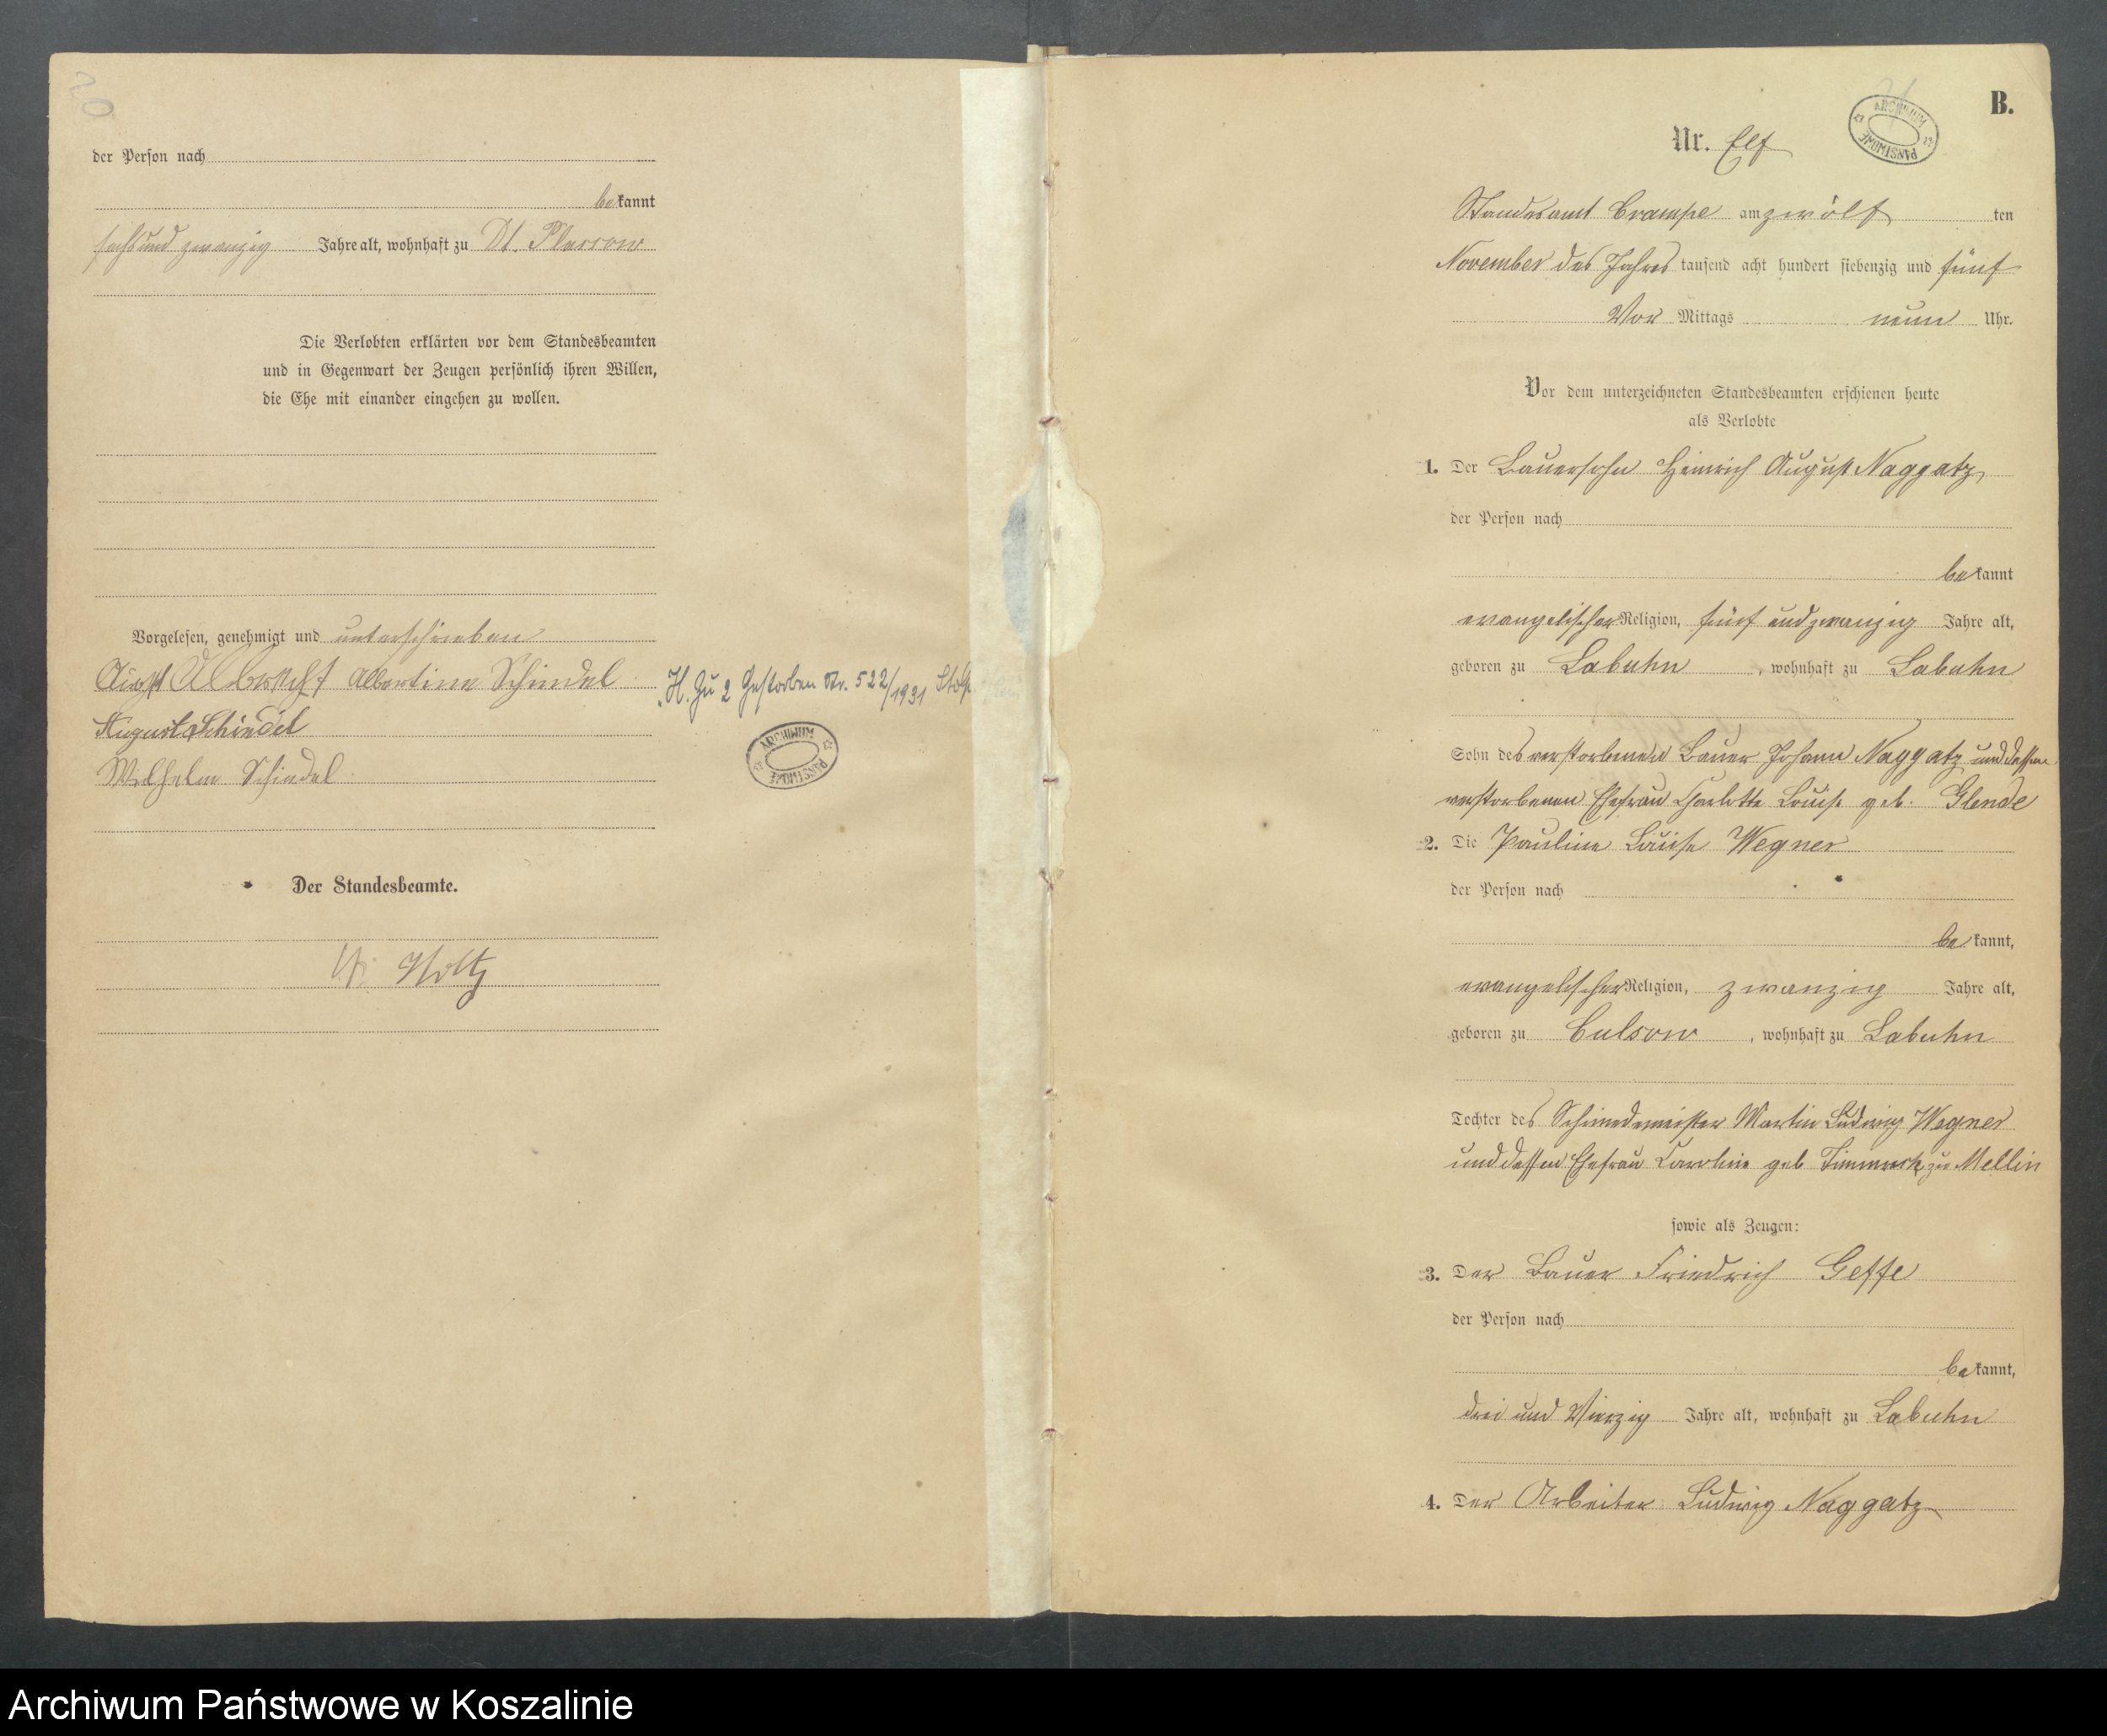 20
der Person nach
bekannt
sechs und zwanzig Jahre alt, wohnhaft zu Dt. Plassow
Die Verlobten erklärten vor dem Standesbeamten
und in Gegenwart der Zeugen persönlich ihren Willen,
die Ehe mit einander eingehen zu wollen.
Vorgelesen, genehmigt und unterschrieben
August Albrecht Albertine Schindel
August Schindel
Wilhelm Schindel
H. Zu 2 Gestorben Nr. 522/1931 Stolp
ARCHIWUM PAŃSTWOWE
Der Standesbeamte.
Holtz
B.
ARCHIWUM PAŃSTWOWE
Nr. Elf
Standesamt Crampe am zwölf ten
November des Jahres tausend acht hundert siebenzig und fünf
Vor Mittags neun Uhr.
Vor dem unterzeichneten Standesbeamten erschienen heute
als Verlobte
1. Der Bauersohn Heinrich August Naggatz
der Person nach
bekannt
evangelischer Religion, fünf und zwanzig Jahre alt,
geboren zu Labuhn, wohnhaft zu Labuhn
Sohn des verstorbenen Bauer Johann Naggatz und dessen
verstorbenen Ehefrau Charlotte Louise geb. Glende
2. Die Pauline Louise Wegner
der Person nach
bekannt,
evangelischer Religion, zwanzig Jahre alt,
geboren zu Culsow, wohnhaft zu Labuhn
Tochter des Schmiedemeister Martin Ludwig Wegner
und dessen Ehefrau Caroline geb zu Mellin
sowie als Zeugen:
3. Der Bauer Friedrich Geffe
der Person nach
bekannt,
drei und Vierzig Jahre alt, wohnhaft zu Labuhn
4. Der Arbeiter Ludwig Naggatz
Archiwum Państwowe w Koszalinie